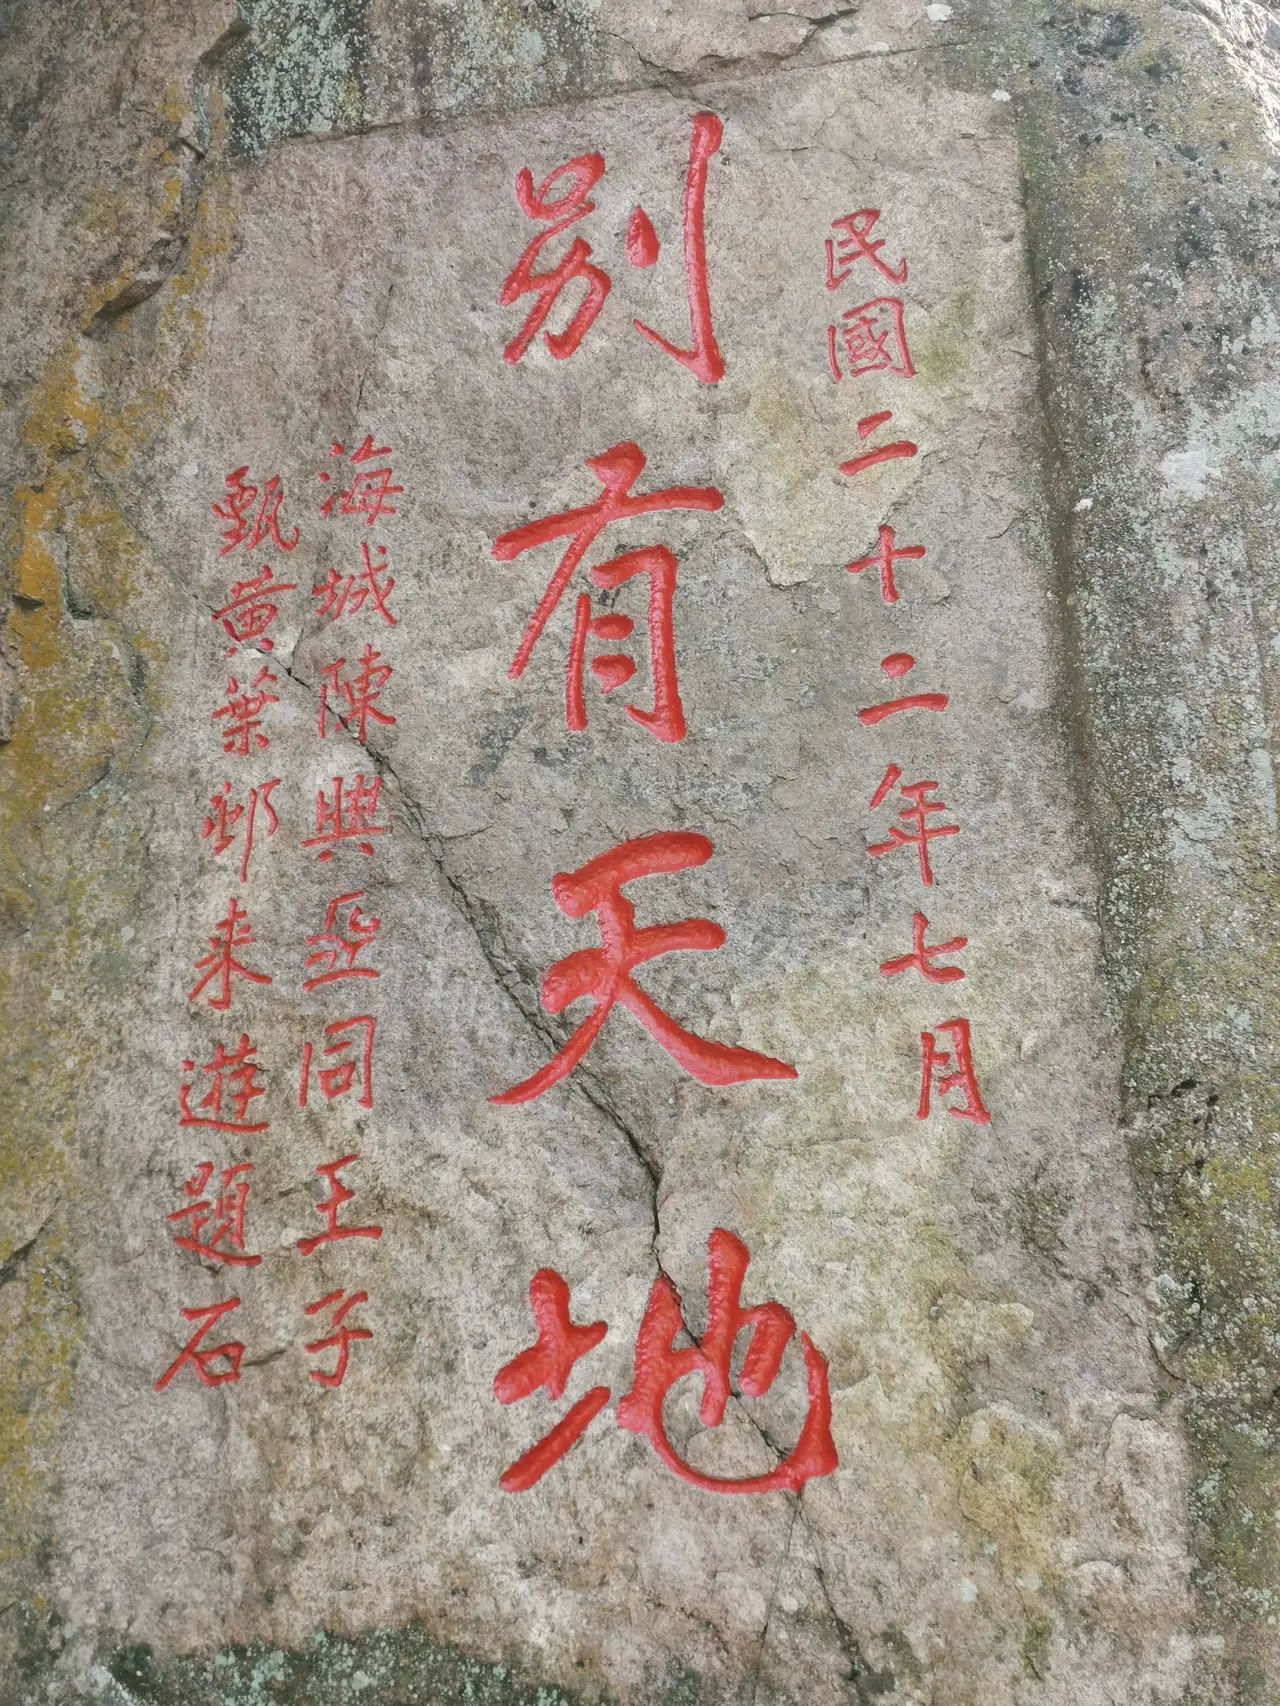 民國二十二年七月
別有天地
海城陳興亞同王子
甄黄葉邨来遊題石